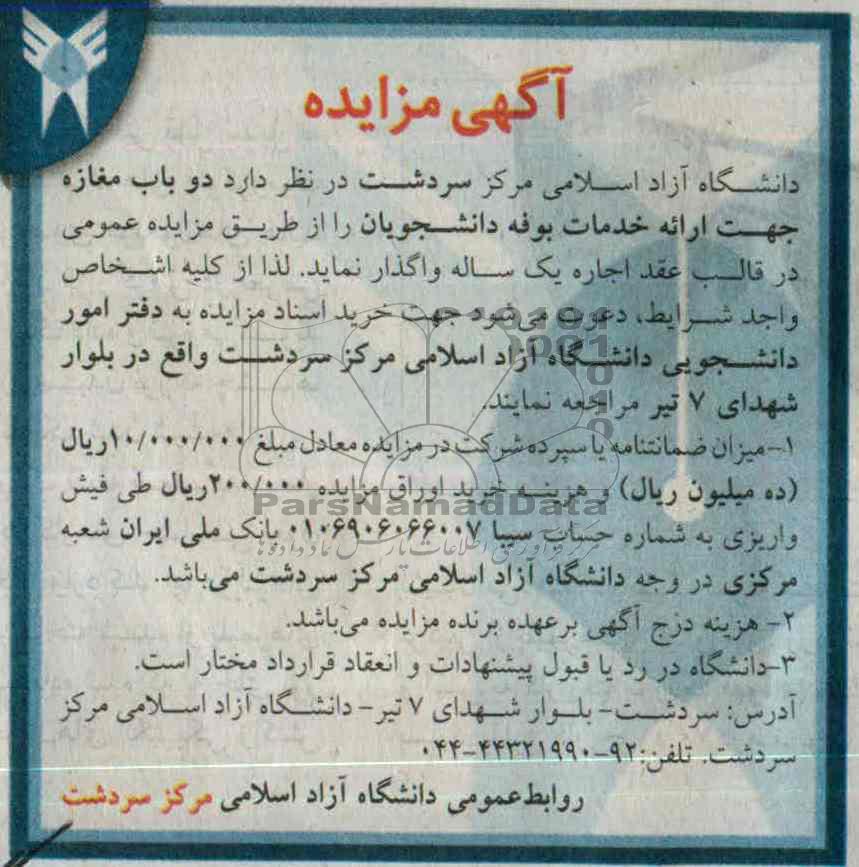 آگهی مزایده
دانشگاه آزاد اسلامی مرکز سردشت در نظر دارد دو باب مغازه
جهت ارائه خدمات بوفه دانشجویان را از طریق مزایده عمومی
در قالب عقد اجاره یک ساله واگذار نماید. لذا از کلیه اشخاص
واجد شرایط، دعوت می‌شود جهت خرید اسناد مزایده به دفتر امور
دانشجویی دانشگاه آزاد اسلامی مرکز سردشت واقع در بلوار
شهدای ۷ تیر مراجعه نمایند.
۱-میزان ضمانتنامه یا سپرده شرکت در مزایده معادل مبلغ ۱۰/۰۰۰/۰۰۰ریال
(ده میلیون ریال) و هزینه خرید اوراق مزایده ۲۰۰/۰۰۰ریال طی فیش
واریزی به شماره حساب سیبا ۰۱۰۶۹۰۶۰۶۶۰۰۷ بانک ملی ایران شعبه
مرکزی در وجه دانشگاه آزاد اسلامی مرکز سردشت می‌باشد.
۲- هزینه درج آگهی برعهده برنده مزایده می‌باشد.
۳-دانشگاه در رد یا قبول پیشنهادات و انعقاد قرارداد مختار است.
آدرس: سردشت- بلوار شهدای ۷ تیر- دانشگاه آزاد اسلامی مرکز
سردشت. تلفن:۹۲-۴۴۳۲۱۹۹۰-۰۴۴
روابط‌عمومی دانشگاه آزاد اسلامی مرکز سردشت
ParsNamadData